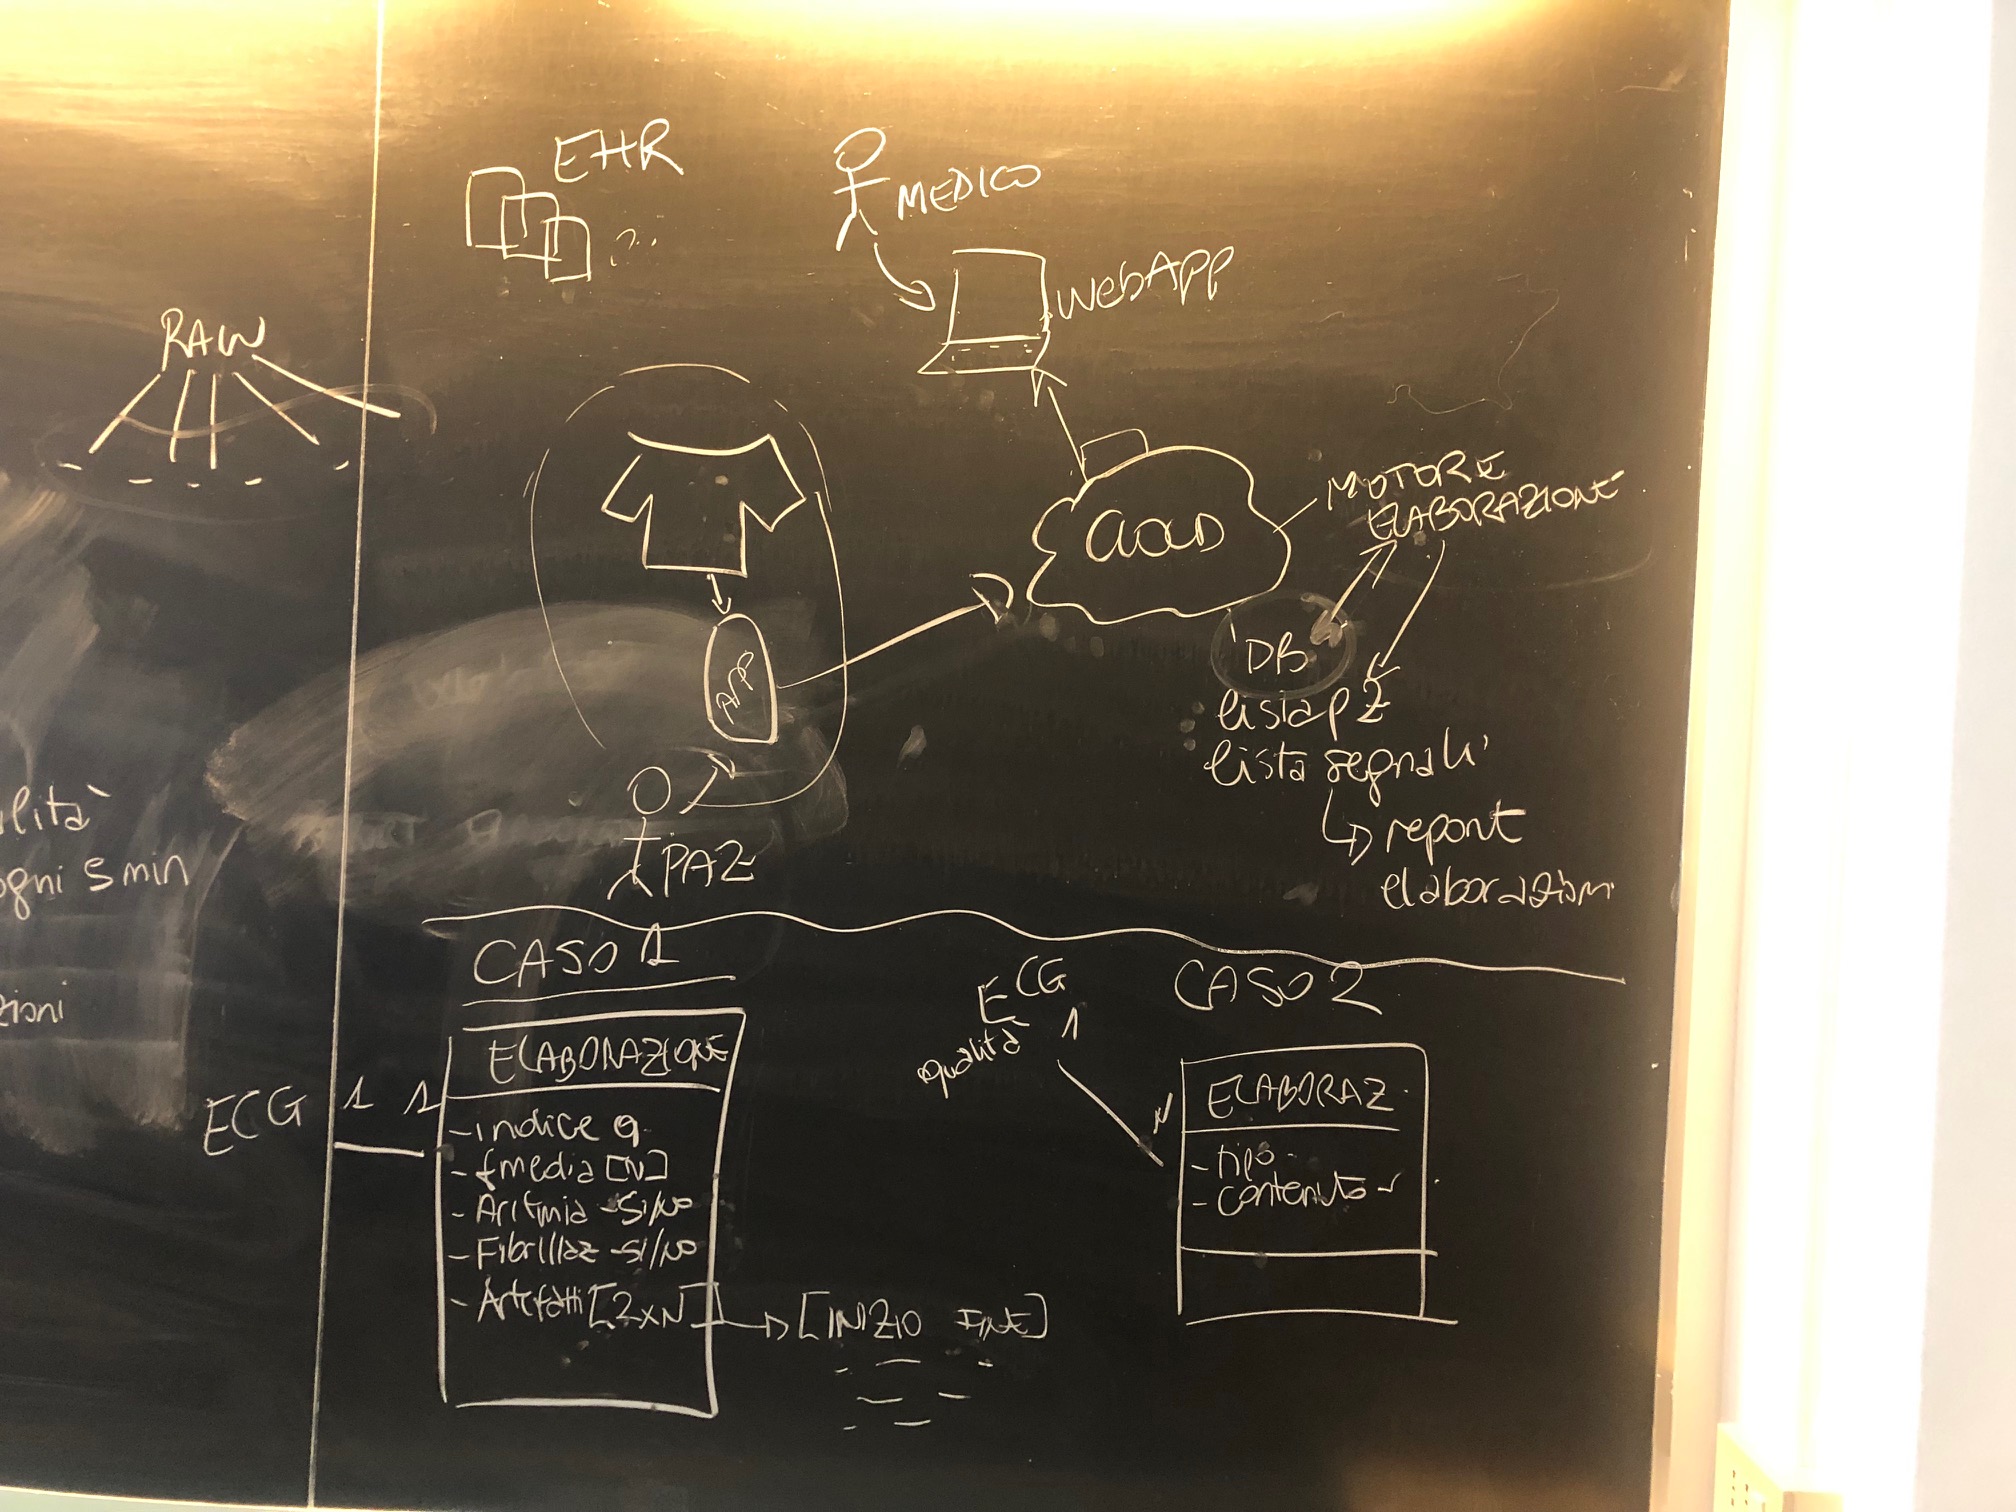 EHR
?..
MEDICO
WebAPP
RAW
CLOUD
MOTORE
ELABORAZIONE
APP
DB
lista pz
lista segnali
report
elaborazioni
PAZ
lità
ogni 5 min
zioni
CASO 1
ELABORAZIONE
ECG 1 1
- indice q.
- fmedia [N]
- Aritmia - SI/NO
- Fibrillaz - SI/NO
- Artefatti [2xN] → [INIZIO FINE]
ECG
qualità 1
CASO 2
N
ELABORAZ.
- tipo
- contenuto